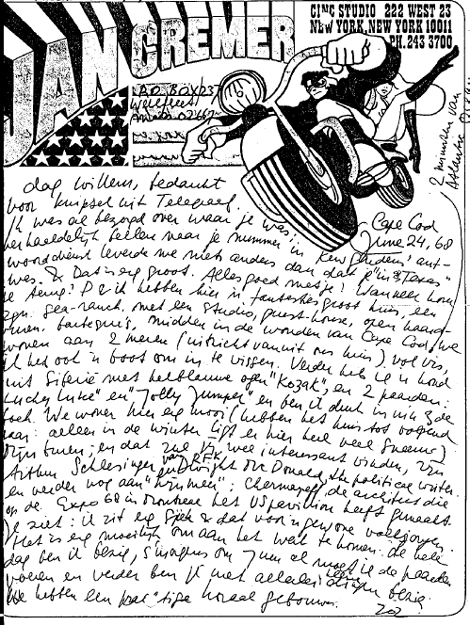 JAN CREMER
CINC STUDIO 222 WEST 23
NEW YORK, NEW YORK 10011
PH. 243 3700
Wellfleet
2 minuten van
Atlantic
Cape Cod
June 24, 68
dag Willem, bedankt
voor knipsel uit Telegraaf.
Ik was al bezorgd over waar je was:
herhaaldelijk bellen naar je nummer in Kew Gardens' ant-
woorddienst leverde me niets anders dan dat je "in Texas"
was. & Dat is erg groot. Alles goed met je? Wanneer kom
je terug? & ik hebben hier in fantasties groot huis, een
zgn. sea-ranch, met een studio, guest-house, open haard-
midden in de wouden van Cape Cod. We
wonen aan 2 meren (uitzicht vanuit ons huis) vol vis,
ik heb ook 'n boot om in te vissen. Verder heb ik 'n hond
uit Siberië met helblauwe ogen "Kozak", en 2 paarden:
"Lucky Luke" en "Jolly Jumper" en ben ik druk in mijn 3de
boek. We wonen hier erg mooi (hebben het huis tot volgend
jaar: alleen in de winter ligt er hier heel veel sneeuw)
Mijn buren, en dat zul jij wel interessant vinden, zijn
Arthur Schlesinger van RFK en Dwight Mc Donald, the political writer
en verder nog aan "mijn meer": Chermayeff, de architect die
op de Expo 68 in Montreal het US pavilion heeft gemaakt.
Je ziet: ik zit erg sjiek & dat voor 'n gewone volksjongen.
Het is erg moeilijk om aan het werk te komen. de hele
dag ben ik bezig, s'morgens om 7 uur al moet ik de paarden
voeren en verder ben ik met allerlei dingen bezig.
We hebben een tipe koraal gebouwd.
zoz